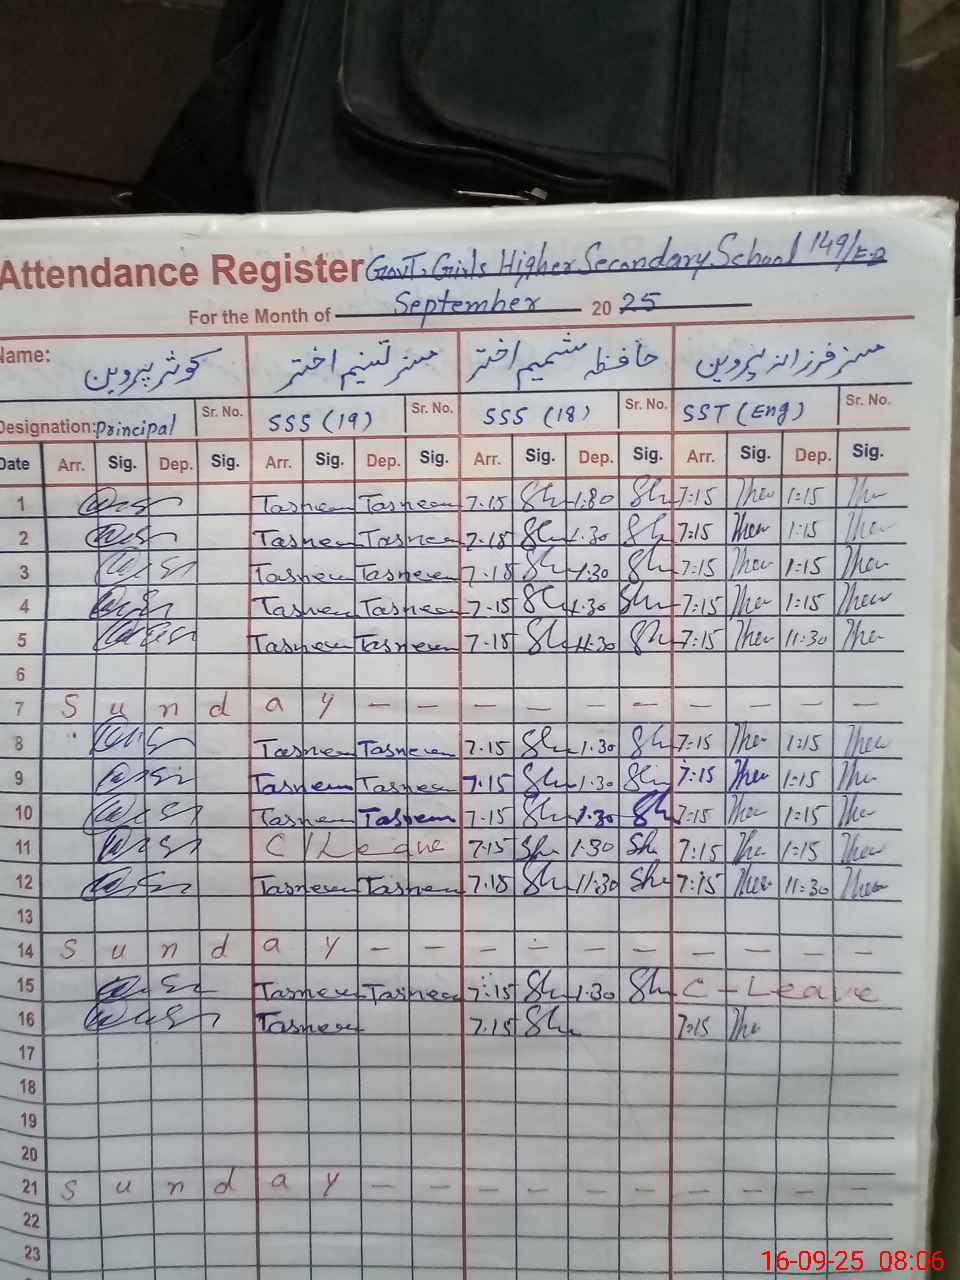 Attendance Register Govt. Girls Higher Secondary School 149/E.B
For the Month of September 20 25
Name: کوثر پروین مسز تسنیم اختر حافظہ شمیم اختر مسز فرزانہ پروین
Designation: Principal Sr. No. SSS (19) Sr. No. SSS (18) Sr. No. SST (Eng) Sr. No.
Date Arr. Sig. Dep. Sig. Arr. Sig. Dep. Sig. Arr. Sig. Dep. Sig. Arr. Sig. Dep. Sig.
1 Tasneem Tasneem 7.15 1:30 7:15 1:15
2 Tasneem Tasneem 7.15 1.30 7:15 1:15
3 Tasneem Tasneem 7.15 1:30 7:15 1:15
4 Tasneem Tasneem 7.15 1.30 7:15 1:15
5 Tasneem Tasneem 7.15 11:30 7:15 11:30
6
7 S u n d a y — — — — — — — — — —
8 Tasneem Tasneem 7.15 1.30 7:15 1:15
9 Tasneem Tasneem 7.15 1:30 7:15 1:15
10 Tasneem Tasneem 7.15 1:30 7:15 1:15
11 C/Leave 7:15 1:30 7:15 1:15
12 Tasneem Tasneem 7.15 11:30 7:15 11:30
13
14 S u n d a y — — — — — — — — — —
15 Tasneem Tasneem 7:15 1:30 C-Leave
16 Tasneem 7.15 7:15
17
18
19
20
21 S u n d a y — — — — — — — — — —
22
23
16-09-25 08:06